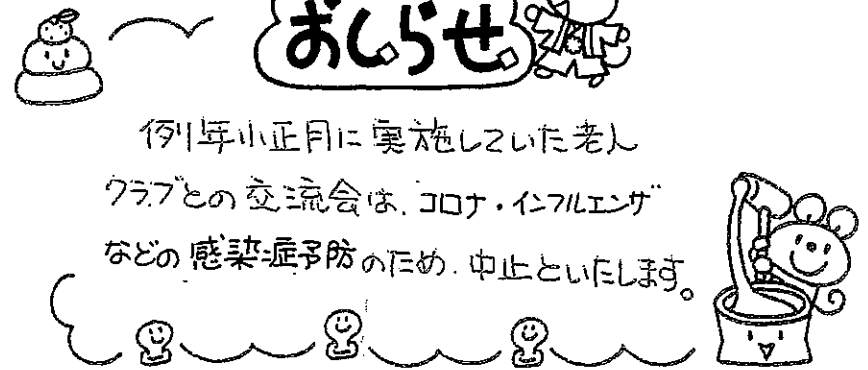 おしらせ
例年小正月に実施していた老人
クラブとの交流会は、コロナ・インフルエンザ
などの感染症予防のため、中止といたします。